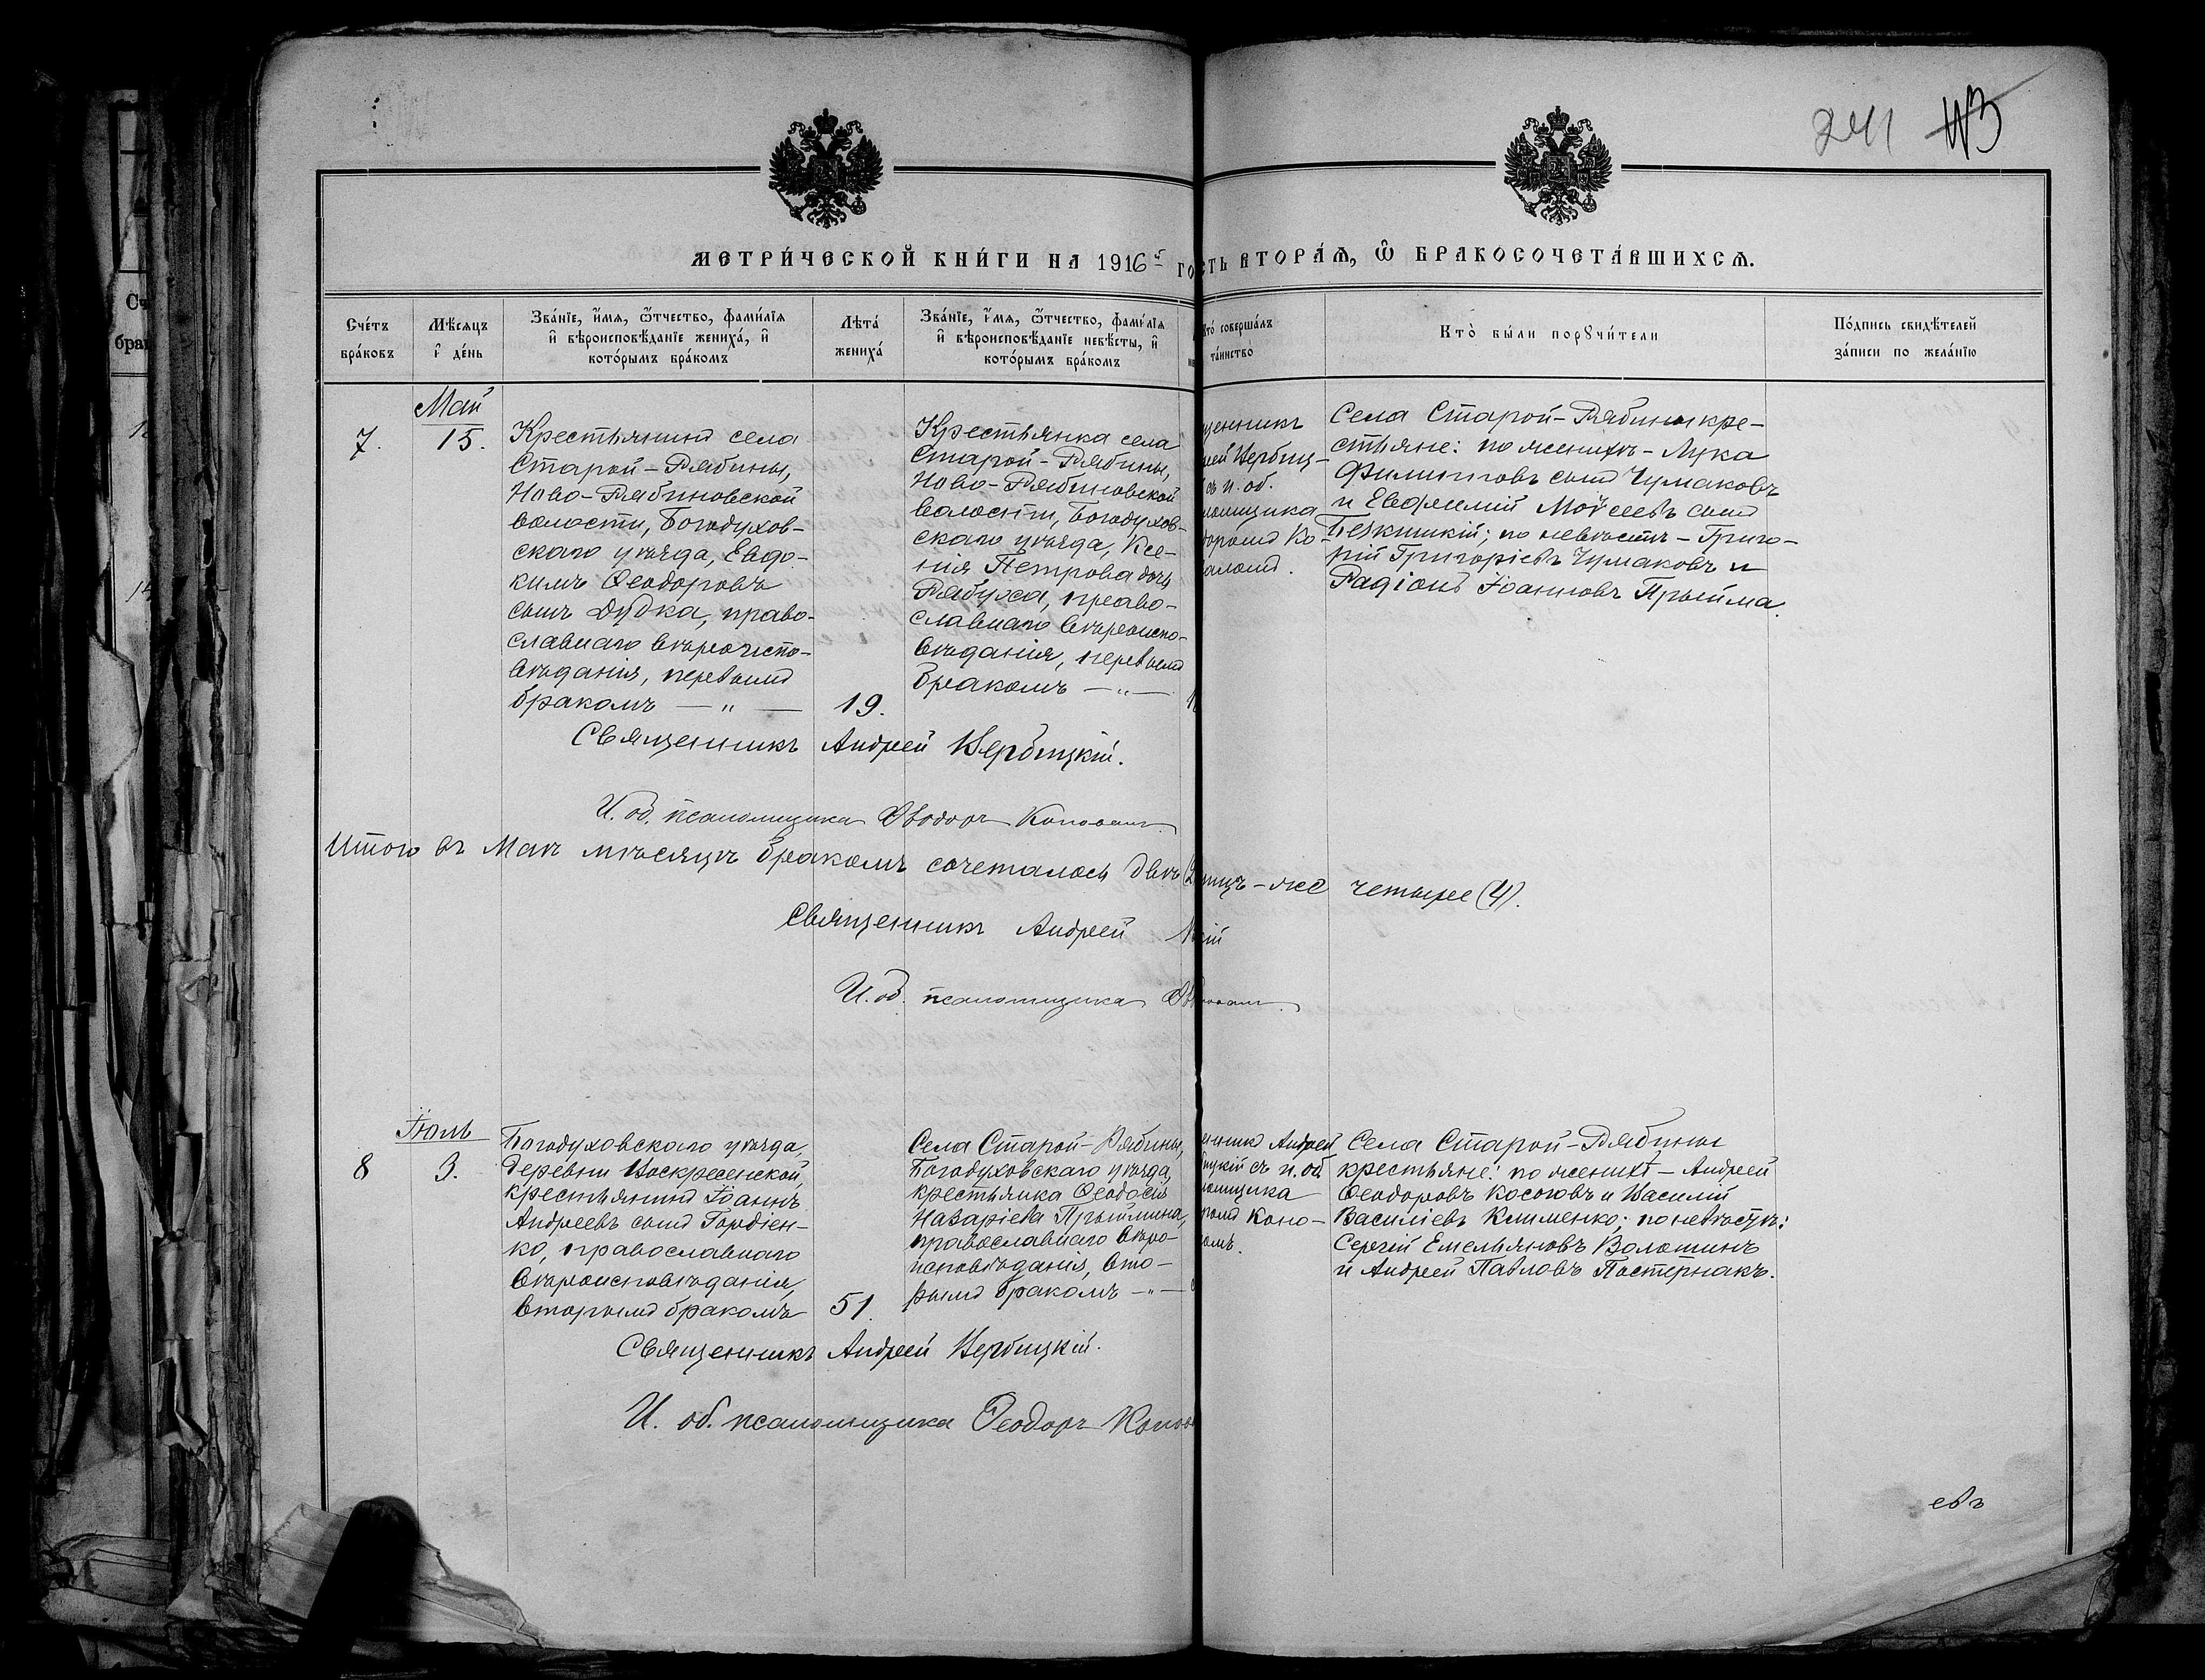 241 113
МЕТРИ́ЧЕСКОЙ КНИ́ГИ НА 1916й ГО
СТЬ ВТОРА́Ѧ, Ѡ БРАКОСОЧЕТА́ВШИХСѦ.
Сче́тъ бра́ковъ
Мѣ́сяцъ и де́нь
Зва́нїе, и́мя, ѻ́тчество, фами́лїя и вѣроисповѣ́данїе жениха́, и кото́рымъ бра́комъ
Лѣта́ жениха́
Зва́нїе, и́мя, ѻ́тчество, фами́лїя и вѣроисповѣ́данїе невѣ́сты, и кото́рымъ бра́комъ
кто̀ соверша́лъ та́инство
Кто̀ бы́ли порꙋчи́тели
По́дпись свидѣ́телей за́писи по жела́нїю
Май
7.
15.
Крестьянинъ села
Старой-Рябины,
Ново-Рябиновской
волости, Богодухов-
скаго уѣзда, Евдо-
кимъ Ѳеодоровъ
сынъ Дудка, право-
славнаго вѣроиспо-
вѣданія, первымъ
бракомъ — „ —
19.
Крестьянка села
Старой-Рябины,
Ново-Рябиновской
волости, Богодухов-
скаго уѣзда, Ксе-
нія Петрова дочь
Рябуха, право-
славнаго вѣроиспо-
вѣданія, первымъ
бракомъ — „ —
щенникъ
рей Вербиц-
съ и. об.
ломщика
доромъ Ко-
аломъ.
Села Старой-Рябины кре-
стьяне: по женихѣ - Лука
Филипповъ сынъ Чумаковъ
и Евфимій Моѵсеевъ сынъ
по невѣстѣ - Григо-
рій Григоріевъ Чумаковъ и
Радіонъ Іоанновъ Прыйма.
Священникъ Андрей Вербицкій.
И. об. псаломщика Ѳеодоръ Коновалъ.
Итого въ Маѣ мѣсяцѣ бракомъ сочеталось двѣ (2
лицъ-же четыре (4).
Священникъ Андрей
кій
И. об. псаломщика
Іюль
8
3.
Богодуховскаго уѣзда,
деревни Воскресенской,
крестьянинъ Іоаннъ
Андреевъ сынъ Гордіен-
ко, православнаго
вѣроисповѣданія,
вторымъ бракомъ
51.
Села Старой-Рябины,
Богодуховскаго уѣзда,
крестьянка Ѳеодосія
Назаріева Прыймина,
православнаго вѣро-
исповѣданія, вто-
рымъ бракомъ — „ —
нникъ Андрей
ицкій съ и. об.
ломщика
ромъ Коно-
омъ.
Села Старой-Рябины
крестьяне: по женихѣ - Андрей
Ѳеодоровъ Косоговъ и Василій
Василіевъ Клименко; по невѣстѣ:
Сергій Емельяновъ Волотинъ
и Андрей Павловъ Постернакъ.
Священникъ Андрей Вербицкій.
И. об. псаломщика Ѳеодоръ Конов
евъ